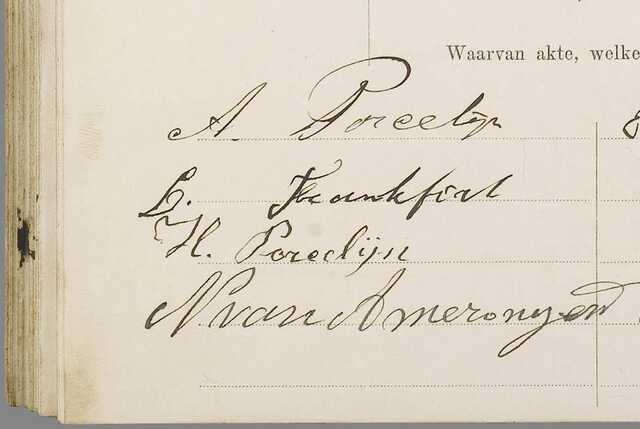 Waarvan akte, welke
A. Porcelijn
L. Frankfort
H. Porcelijn
N. van Amerongen